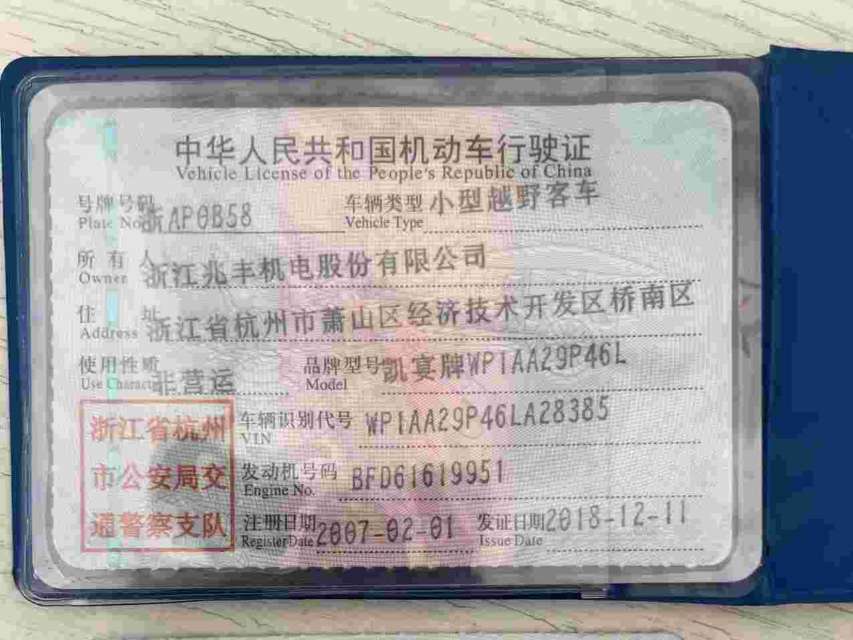 中华人民共和国机动车行驶证
Vehicle License of the People's Republic of China
号牌号码 浙AP0B58 车辆类型 小型越野客车
Plate No. Vehicle Type
所有人 浙江兆丰机电股份有限公司
Owner
住址 浙江省杭州市萧山区经济技术开发区桥南区
Address
使用性质 非营运 品牌型号 凯宴牌WP1AA29P46L
Use Character Model
浙江省杭州 车辆识别代号 WP1AA29P46LA28385
VIN
市公安局交 发动机号码 BFD61619951
Engine No.
通警察支队 注册日期 2007-02-01 发证日期 2018-12-11
Register Date Issue Date